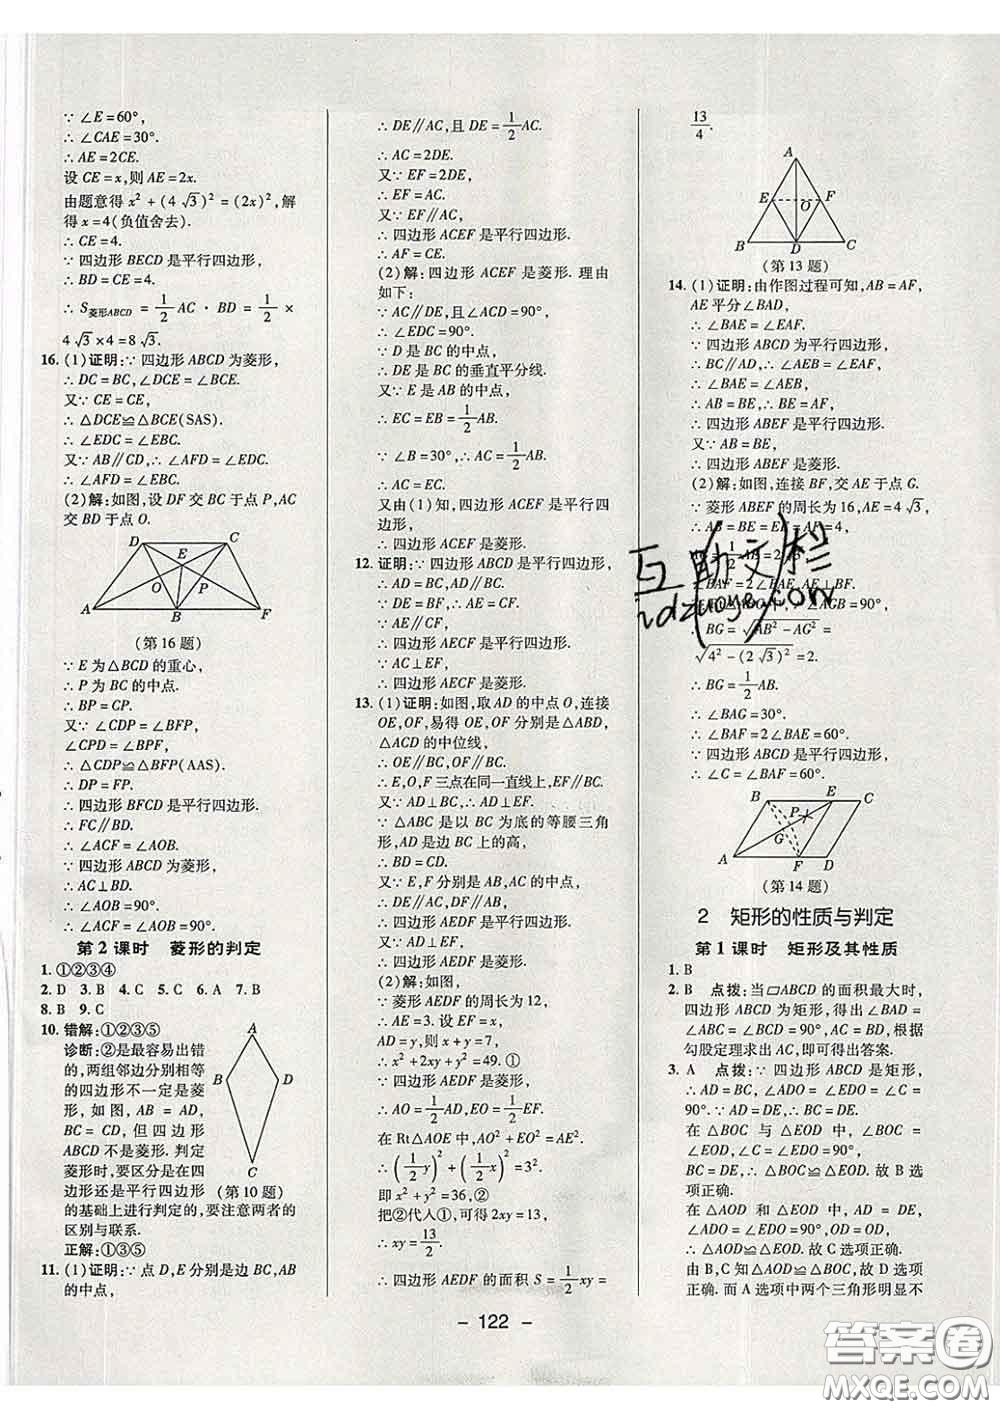 ∵ ∠E=60°,
∴ ∠CAE=30°.
∴ AE=2CE.
设 CE=x,则 AE=2x.
由题意得 x²+(4√3)²=(2x)²,解
得 x=4(负值舍去).
∴ CE=4.
∵ 四边形 BECD 是平行四边形,
∴ BD=CE=4.
∴ S菱形ABCD=1/2 AC·BD=1/2×
4√3×4=8√3.
16. (1)证明:∵ 四边形 ABCD 为菱形,
∴ DC=BC,∠DCE=∠BCE.
又∵ CE=CE,
∴ △DCE≌△BCE(SAS).
∴ ∠EDC=∠EBC.
又∵ AB∥CD,∴ ∠AFD=∠EDC.
∴ ∠AFD=∠EBC.
(2)解:如图,设 DF 交 BC 于点 P,AC
交 BD 于点 O.
D C
E
O P
A B F
(第 16 题)
∵ E 为 △BCD 的重心,
∴ P 为 BC 的中点.
∴ BP=CP.
又∵ ∠CDP=∠BFP,
∠CPD=∠BPF,
∴ △CDP≌△BFP(AAS).
∴ DP=FP.
∴ 四边形 BFCD 是平行四边形.
∴ FC∥BD.
∴ ∠ACF=∠AOB.
∵ 四边形 ABCD 为菱形,
∴ AC⊥BD.
∴ ∠AOB=90°.
∴ ∠ACF=∠AOB=90°.
第 2 课时 菱形的判定
1. ①②③④
2. D 3. B 4. C 5. C 6. A 7. B
8. B 9. C
10. 错解:①②③⑤
诊断:②是最容易出错
的,两组邻边分别相等
的四边形不一定是菱
形,如图,AB=AD,
BC=CD,但四边形
ABCD 不是菱形.判定
菱形时,要区分是在四
边形还是平行四边形
的基础上进行判定的,要注意两者的
区别与联系.
正解:①③⑤
A
B D
C
(第 10 题)
11. (1)证明:∵ 点 D,E 分别是边 BC,AB
的中点,
∴ DE∥AC,且 DE=1/2 AC.
∴ AC=2DE.
又∵ EF=2DE,
∴ EF=AC.
又∵ EF∥AC,
∴ 四边形 ACEF 是平行四边形.
∴ AF=CE.
(2)解:四边形 ACEF 是菱形.理由
如下:
∵ AC∥DE,∠ACD=90°,
∴ ∠EDC=90°.
∵ D 是 BC 的中点,
∴ DE 是 BC 的垂直平分线.
又∵ E 是 AB 的中点,
∴ EC=EB=1/2 AB.
∵ ∠B=30°,∴ AC=1/2 AB.
∴ AC=EC.
又由(1)知,四边形 ACEF 是平行四
边形,
∴ 四边形 ACEF 是菱形.
12. 证明:∵ 四边形 ABCD 是平行四边形,
∴ AD=BC,AD∥BC.
∵ DE=BF,∴ AE=CF.
∵ AE∥CF,
∴ 四边形 AECF 是平行四边形.
∵ AC⊥EF,
∴ 四边形 AECF 是菱形.
13. (1)证明:如图,取 AD 的中点 O,连接
OE,OF,易得 OE,OF 分别是△ABD,
△ACD 的中位线,
∴ OE∥BC,OF∥BC.
∴ E,O,F 三点在同一直线上,EF∥BC.
又∵ AD⊥BC,∴ AD⊥EF.
∵ △ABC 是以 BC 为底的等腰三角
形,AD 是边 BC 上的高,
∴ BD=CD.
又∵ E,F 分别是 AB,AC 的中点,
∴ DE∥AC,DF∥AB.
∴ 四边形 AEDF 是平行四边形.
又∵ AD⊥EF,
∴ 四边形 AEDF 是菱形.
(2)解:如图,
∵ 菱形 AEDF 的周长为 12,
∴ AE=3.设 EF=x,
AD=y,则 x+y=7,
∴ x²+2xy+y²=49.①
∵ 四边形 AEDF 是菱形,
∴ AO=1/2 AD,EO=1/2 EF.
在 Rt△AOE 中,AO²+EO²=AE².
∴ (1/2 y)²+(1/2 x)²=3².
即 x²+y²=36,②
把②代入①,可得 2xy=13,
∴ xy=13/2.
∴ 四边形 AEDF 的面积 S=1/2 xy=
13/4.
A
E O F
B D C
(第 13 题)
14. (1)证明:由作图过程可知,AB=AF,
AE 平分∠BAD,
∴ ∠BAE=∠EAF.
∵ 四边形 ABCD 是平行四边形,
∴ BC∥AD,∴ ∠AEB=∠EAF,
∴ ∠BAE=∠AEB,
∴ AB=BE,∴ BE=AF,
∴ 四边形 ABEF 是平行四边形.
又∵ AB=BE,
∴ 四边形 ABEF 是菱形.
(2)解:如图,连接 BF,交 AE 于点 G.
∵ 菱形 ABEF 的周长为 16,AE=4√3,
∴ AB=BE=EF=AF=4,
∠BAF=2∠BAE,AE⊥BF.
∠AGB=90°,
∴ BG=√(AB²-AG²)=
√(4²-(2√3)²)=2.
∴ BG=1/2 AB.
∴ ∠BAG=30°.
∴ ∠BAF=2∠BAE=60°.
∵ 四边形 ABCD 是平行四边形,
∴ ∠C=∠BAF=60°.
B E C
P
G
A F D
(第 14 题)
2 矩形的性质与判定
第 1 课时 矩形及其性质
1. B
2. B 点拨:当▱ABCD 的面积最大时,
四边形 ABCD 为矩形,得出∠BAD=
∠ABC=∠BCD=90°,AC=BD,根据
勾股定理求出 AC,即可得出答案.
3. A 点拨:∵ 四边形 ABCD 是矩形,
∴ AD=BC,∠ADO=∠EDO=∠C=
90°.∵ AD=DE,∴ BC=DE.
在 △BOC 与 △EOD 中,∠BOC=
∠EOD,∠C=∠EDO=90°,
BC=DE,∴ △BOC≌△EOD.故 B 选
项正确.
在 △AOD 和 △EOD 中,AD=DE,
∠ADO=∠EDO=90°,OD=OD,
∴ △AOD≌△EOD.故 C 选项正确.
由 B,C 知△AOD≌△BOC,故 D 选项
正确.而 A 选项中两个三角形明显不
- 122 -
互助文栏
答案圈
MXQE.COM